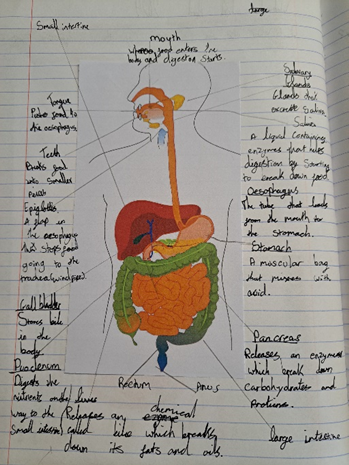 large
Small intestine
mouth
Where food enters the
body and digestion starts.
Salivary
Glands
Glands that
excrete saliva.
Saliva
A liquid containing
enzymes that
digestion by starting
to break down food
Tongue
Pushes food to
the oesophagus
Teeth
Breaks food
into smaller
pieces
Epiglottis
A flap in
the oesophagus
that stops food
going to the
trachea (windpipe)
Oesophagus
The tube that leads
from the mouth to
the stomach.
Stomach
A muscular bag
that with
acid.
Gall bladder
Stores bile
in the
body
Duodenum
Digests the
nutrients on the
way to the
small intestine
Rectum
Anus
liver
Releases an chemical
called bile which breaks
down its fats and oils.
Pancreas
Releases an enzyme
which break down
Carbohydrates and
Proteins.
large intestine